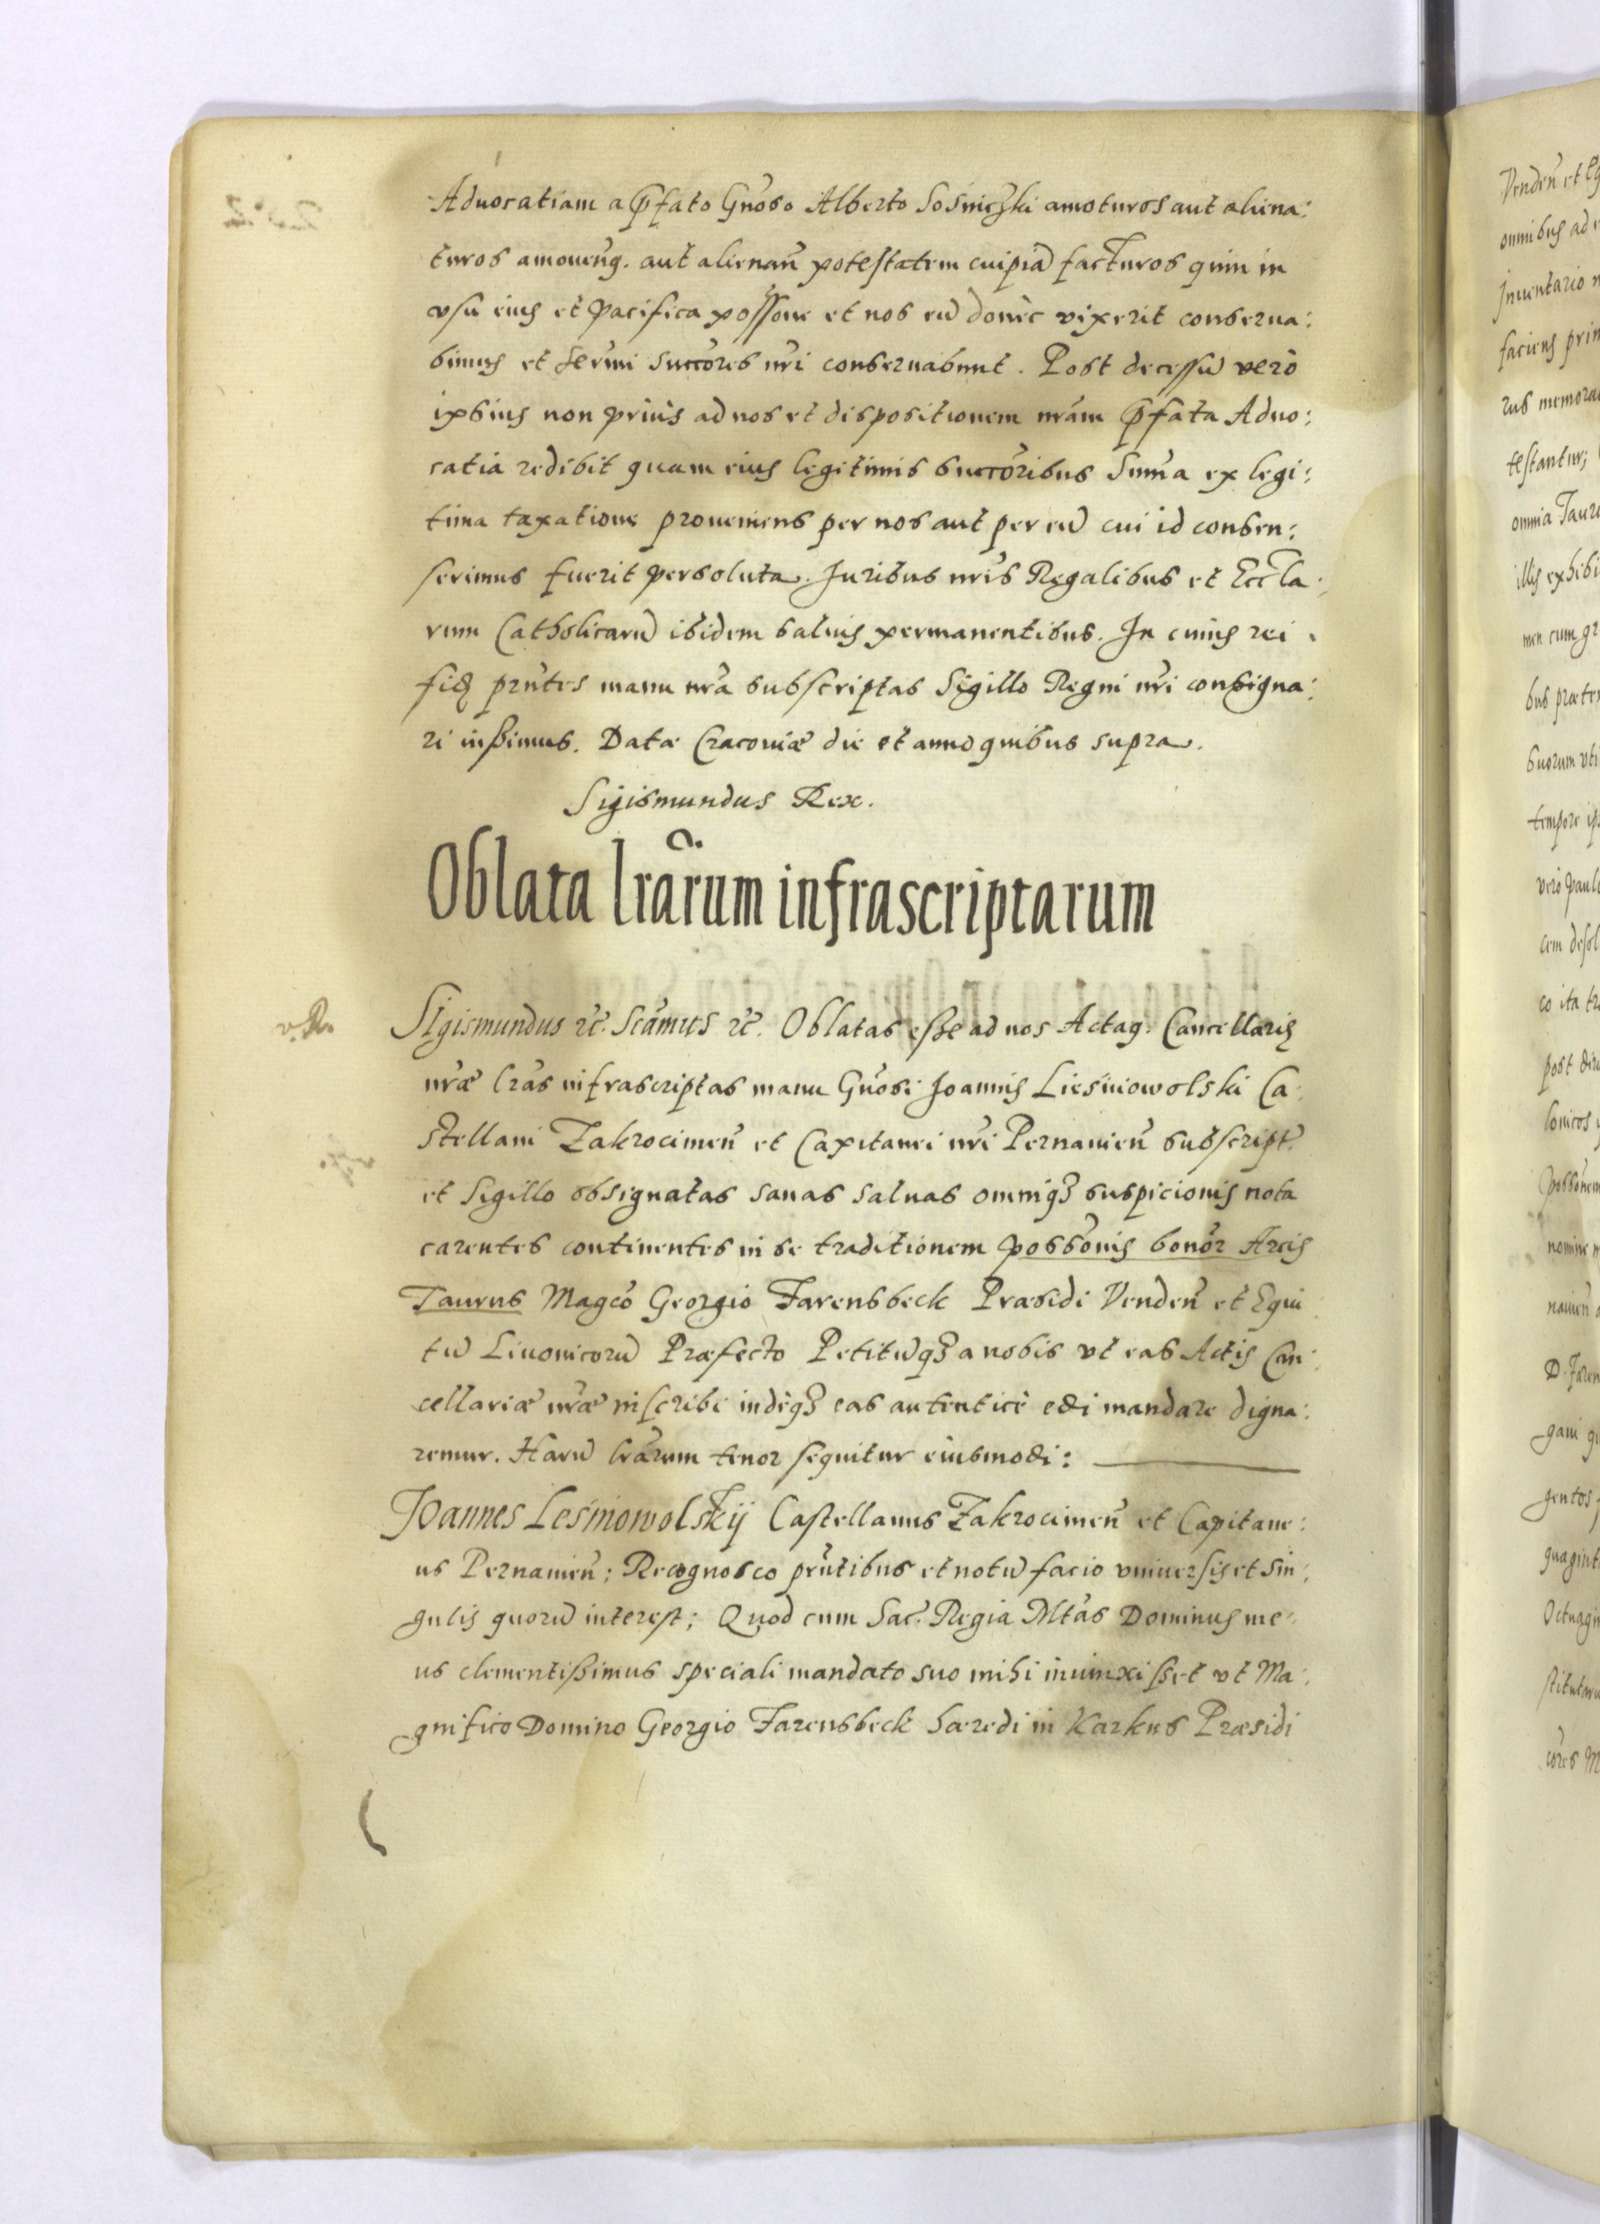 Aduocatiam a p̃fato Gnoso Alberto Sosniczki amoturos aut aliena:
turos amouenq. aut alienan̄ potestatem cuipiā facturos quin in
vsu eius et pacifica possone et nos eū donec vixerit conserua:
bimus et sermi succores nri conseruabunt. Post decessū vero
ipsius non prius ad nos et dispositionem nram p̃fata Aduo:
catia redibit quam eius legitimis succoribus summa ex legi:
tima taxatione proueniens per nos aut per eū cui id consen:
serimus fuerit persoluta. Juribus nris Regalibus et Eccla:
rum Catholicarū ibidem saluis permanentibus. In cuius rei
fidē prntes manu nra subscriptas Sigillo Regni nri consigna:
ri iussimus. Datæ Cracouiæ die et anno quibus supra.
Sigismundus Rex.
Oblata lrārum infrascriptarum
SIgismundus rc. Scāmus rc. Oblatas esse ad nos Actaq. Cancellariæ
nræ lrās infrascriptas manu Gnosi Joannis Liesniowolski Ca:
stellani Zakrocimen̄ et Capitanei nri Pernauien̄ subscript.
et Sigillo obsignatas sanas saluas omniq3 suspicionis nota
carentes continentes in se traditionem possonis bonor Arcis
Taurus Magco Georgio Farensbeck Præsidi Venden̄ et Equi
tū Liuonicorū Præfecto Petitūq3 a nobis vt eas Actis Can:
cellariæ nræ inscribi indeq3 eas autentice edi mandare digna:
remur. Harū lrārum tenor sequitur eiusmodi:
JOannes Lesniowolskij Castellanus Zakrocimen̄ et Capitane:
us Pernauien̄: Recognosco prntibus et notū facio vniuersis et sin:
gulis quorū interest; Quod cum Sac. Regia Mtas Dominus me:
us clementissimus speciali mandato suo mihi iniunxisset vt Ma:
gnifico Domino Georgio Farensbeck hæredi in Karkus Præsidi